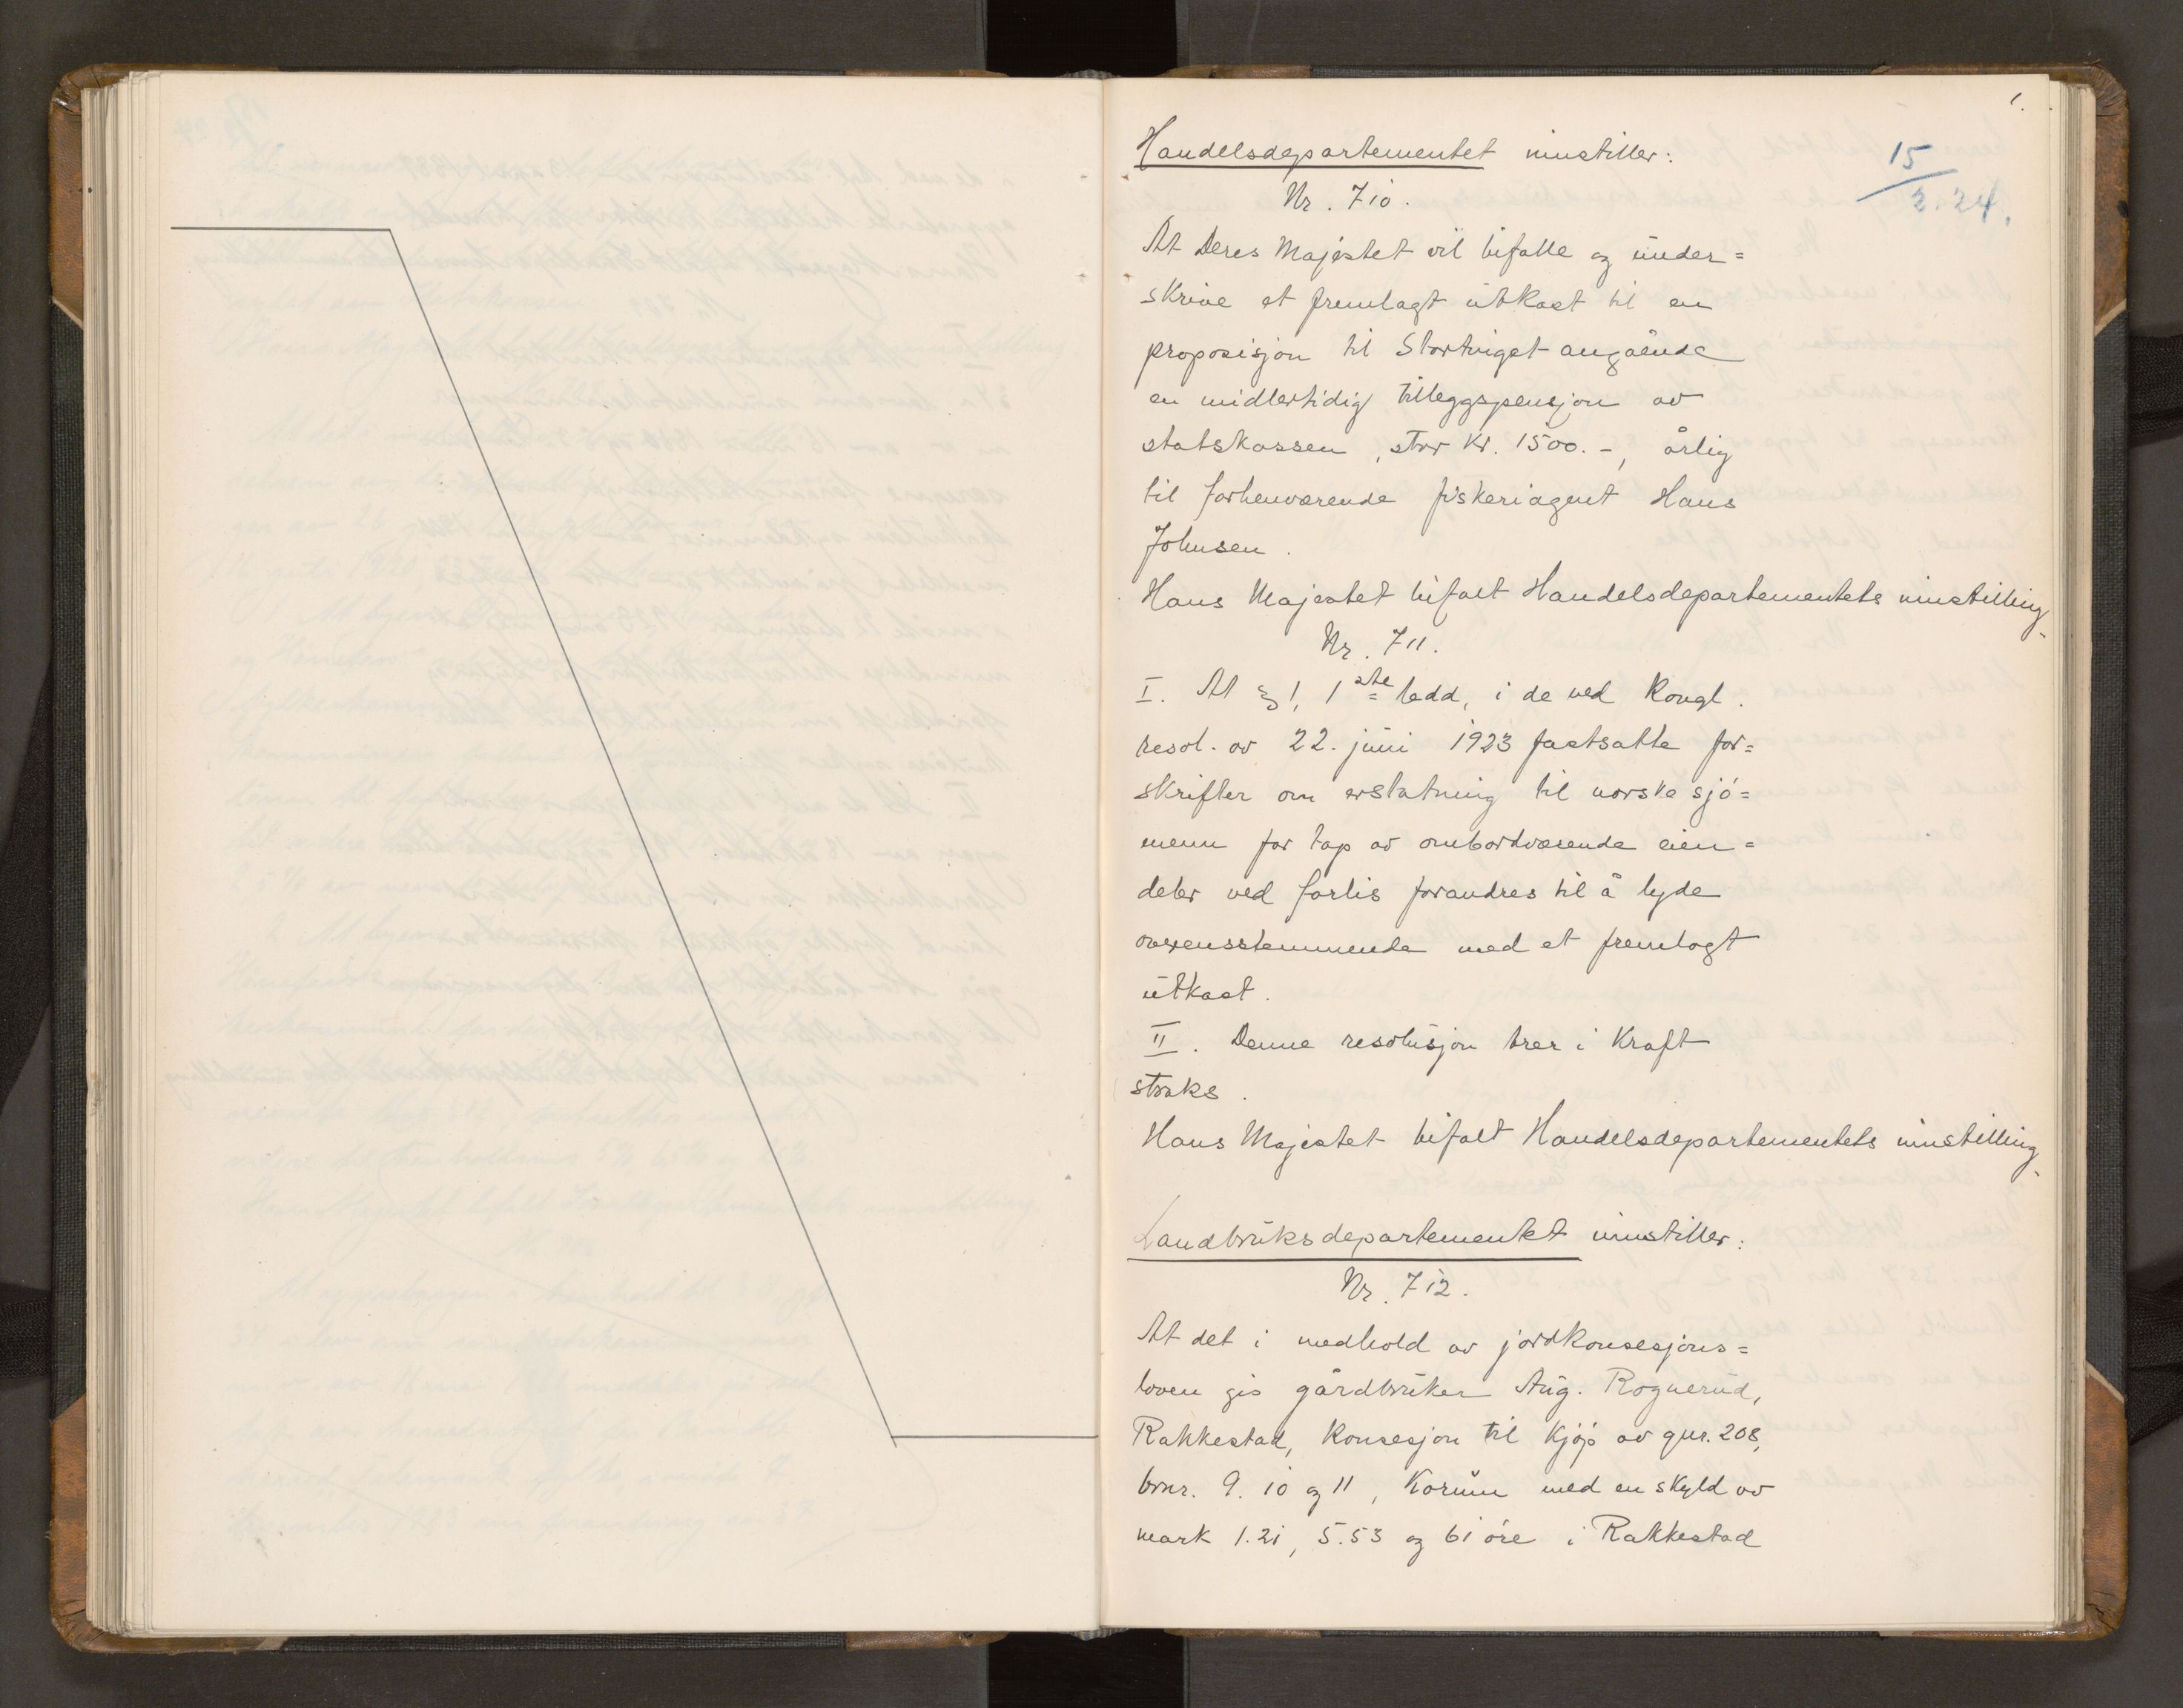 1.
15/2.24.
Handelsdepartementet innstiller:
Nr. 710.
At Deres Majestet vil bifalle og under=
skrive et fremlagt utkast til en
proposisjon til Stortinget angående
en midlertidig tilleggspensjon av
statskassen, stor kr. 1500.-, årlig
til forhenværende fiskeriagent Hans
Johnsen.
Hans Majestet bifalt Handelsdepartementets innstilling.
Nr. 711.
I. At § 1, 1ste ledd, i de ved Kongl.
resol. av 22. juni 1923 fastsatte for=
skrifter om erstatning til norske sjø=
menn for tap av ombordværende eien=
deler ved forlis forandres til å lyde
overensstemmende med et fremlagt
utkast.
II. Denne resolusjon trer i kraft
straks.
Hans Majestet bifalt Handelsdepartementets innstilling.
Landbruksdepartementet innstiller:
Nr. 712.
At det i medhold av jordkonsesjons=
loven gis gårdbruker Aug. Rognerud,
Rakkestad, konsesjon til kjøp av gnr. 208,
brnr. 9. 10 og 11, Korum med en skyld av
mark 1.21, 5.53 og 61 øre i Rakkestad